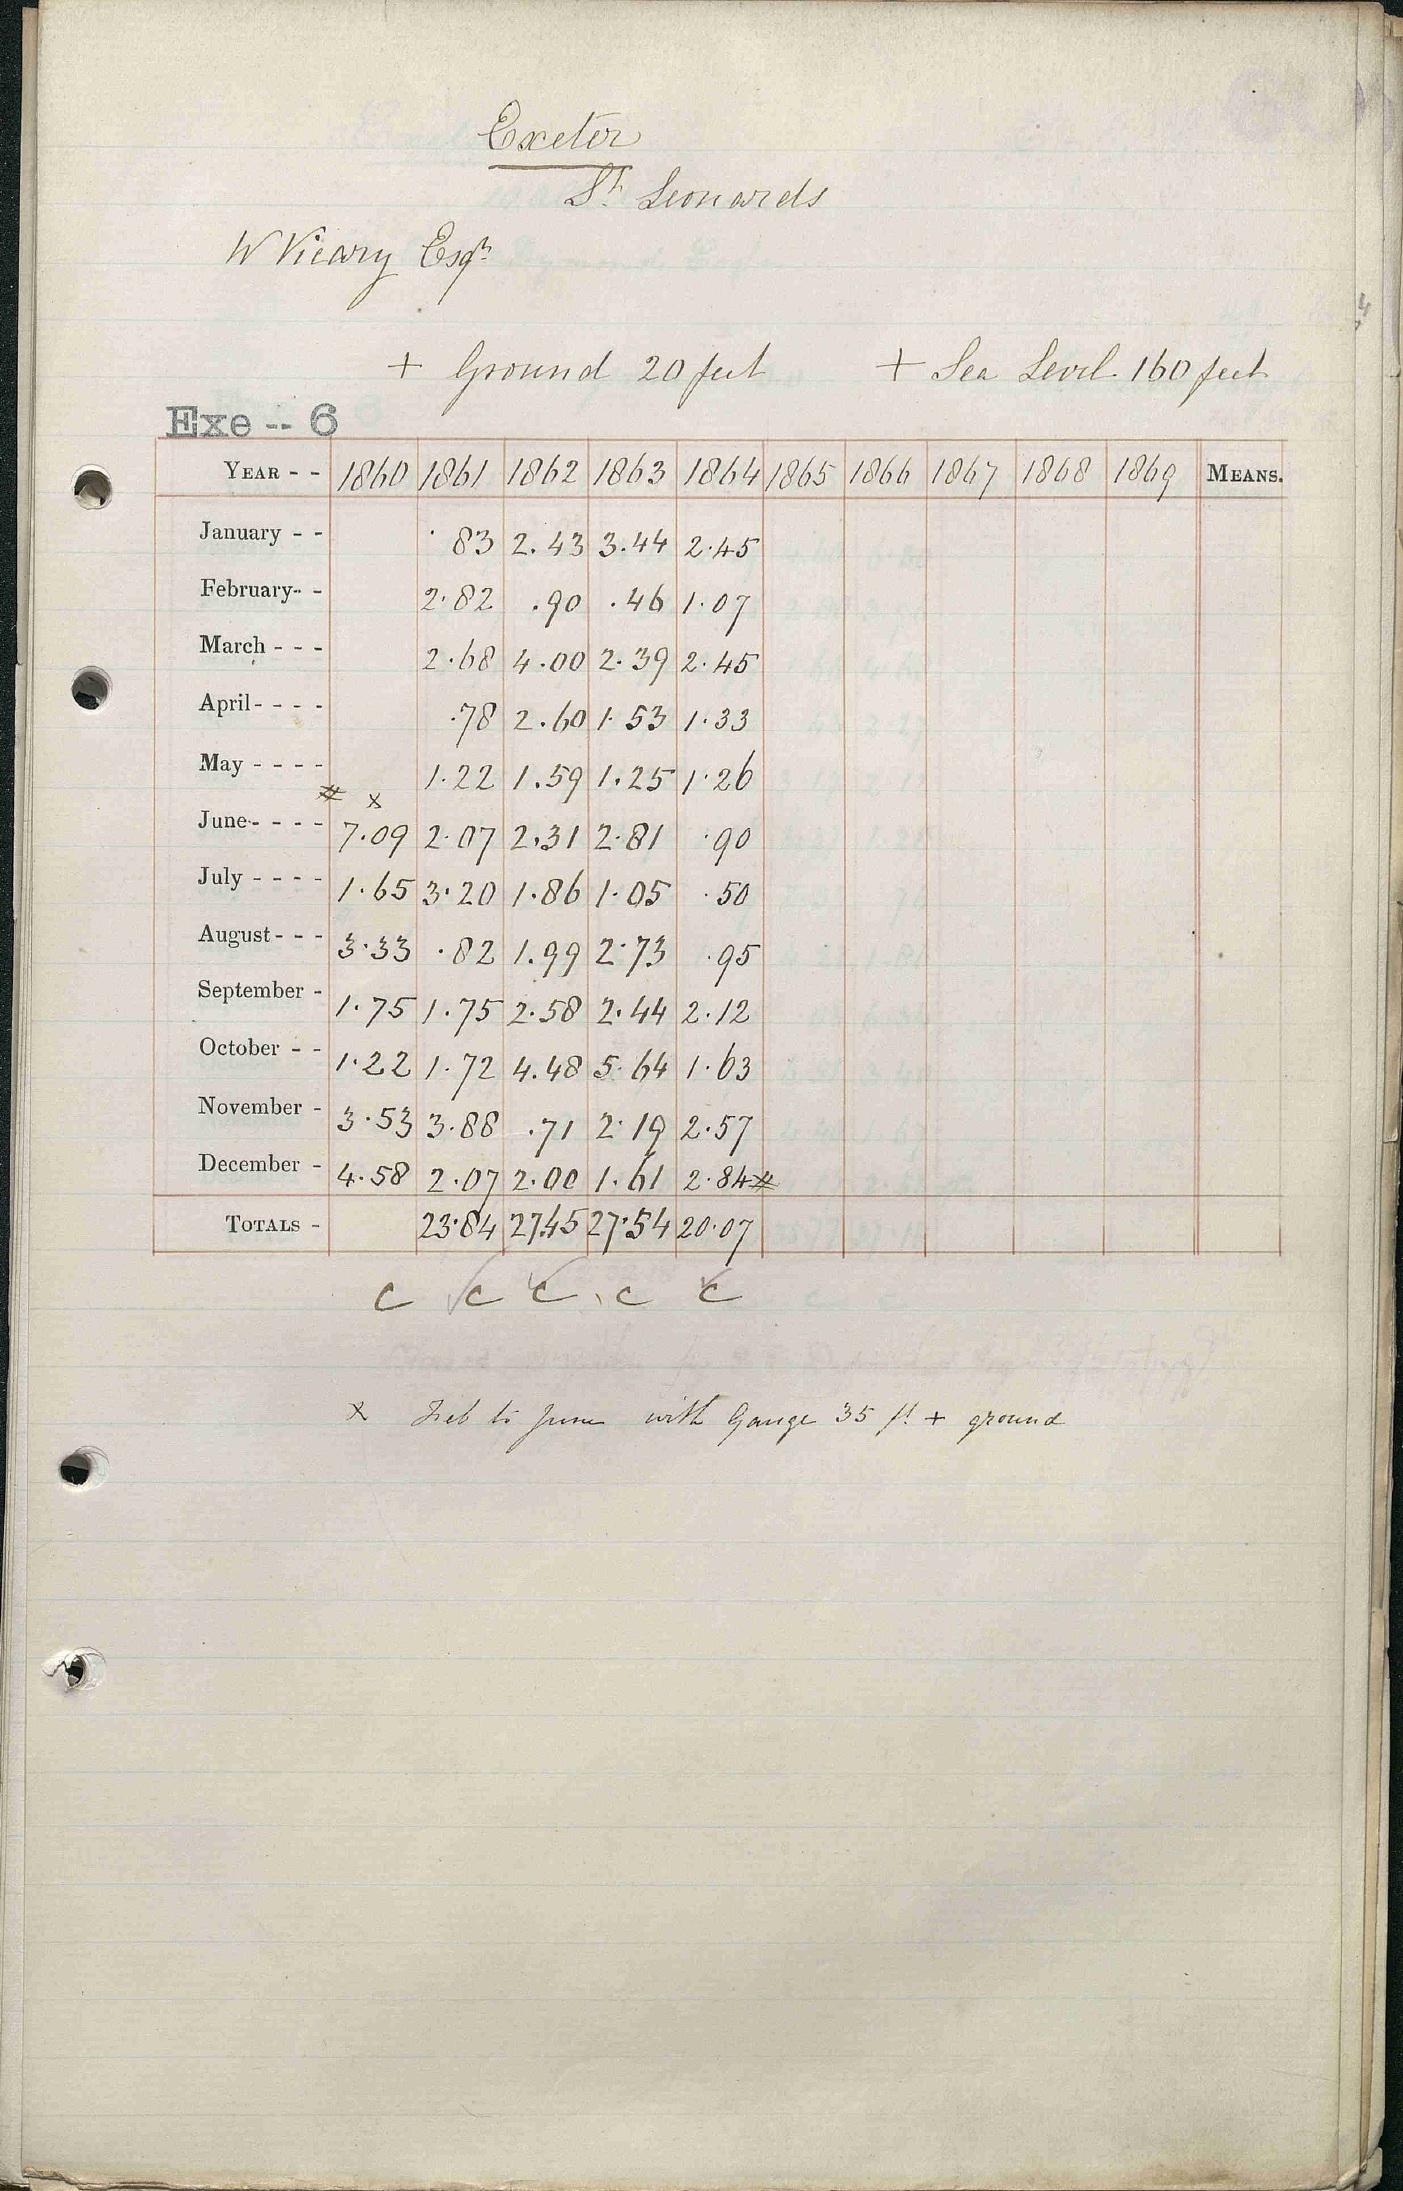 Exeter
St. Leonards
W Vicary Esqr.
+ Ground 20 feet + Sea Level 160 feet
Exe -- 6
YEAR - - 1860 1861 1862 1863 1864 1865 1866 1867 1868 1869 MEANS.
January - - ·83 2.43 3.44 2.45
February- - 2.82 .90 .46 1.07
March - - - 2.68 4.00 2.39 2.45
April- - - - .78 2.60 1.53 1.33
May - - - - 1.22 1.59 1.25 1.26
# x
June- - - - 7.09 2.07 2.31 2.81 .90
July - - - - 1.65 3.20 1.86 1.05 .50
August- - - 3.33 .82 1.99 2.73 .95
September - 1.75 1.75 2.58 2.44 2.12
October - - 1.22 1.72 4.48 5.64 1.63
November - 3.53 3.88 .71 2.19 2.57
December - 4.58 2.07 2.00 1.61 2.84 #
TOTALS - 23.84 27.45 27.54 20.07
c c c c c
x Feb to June with Gauge 35 ft + ground